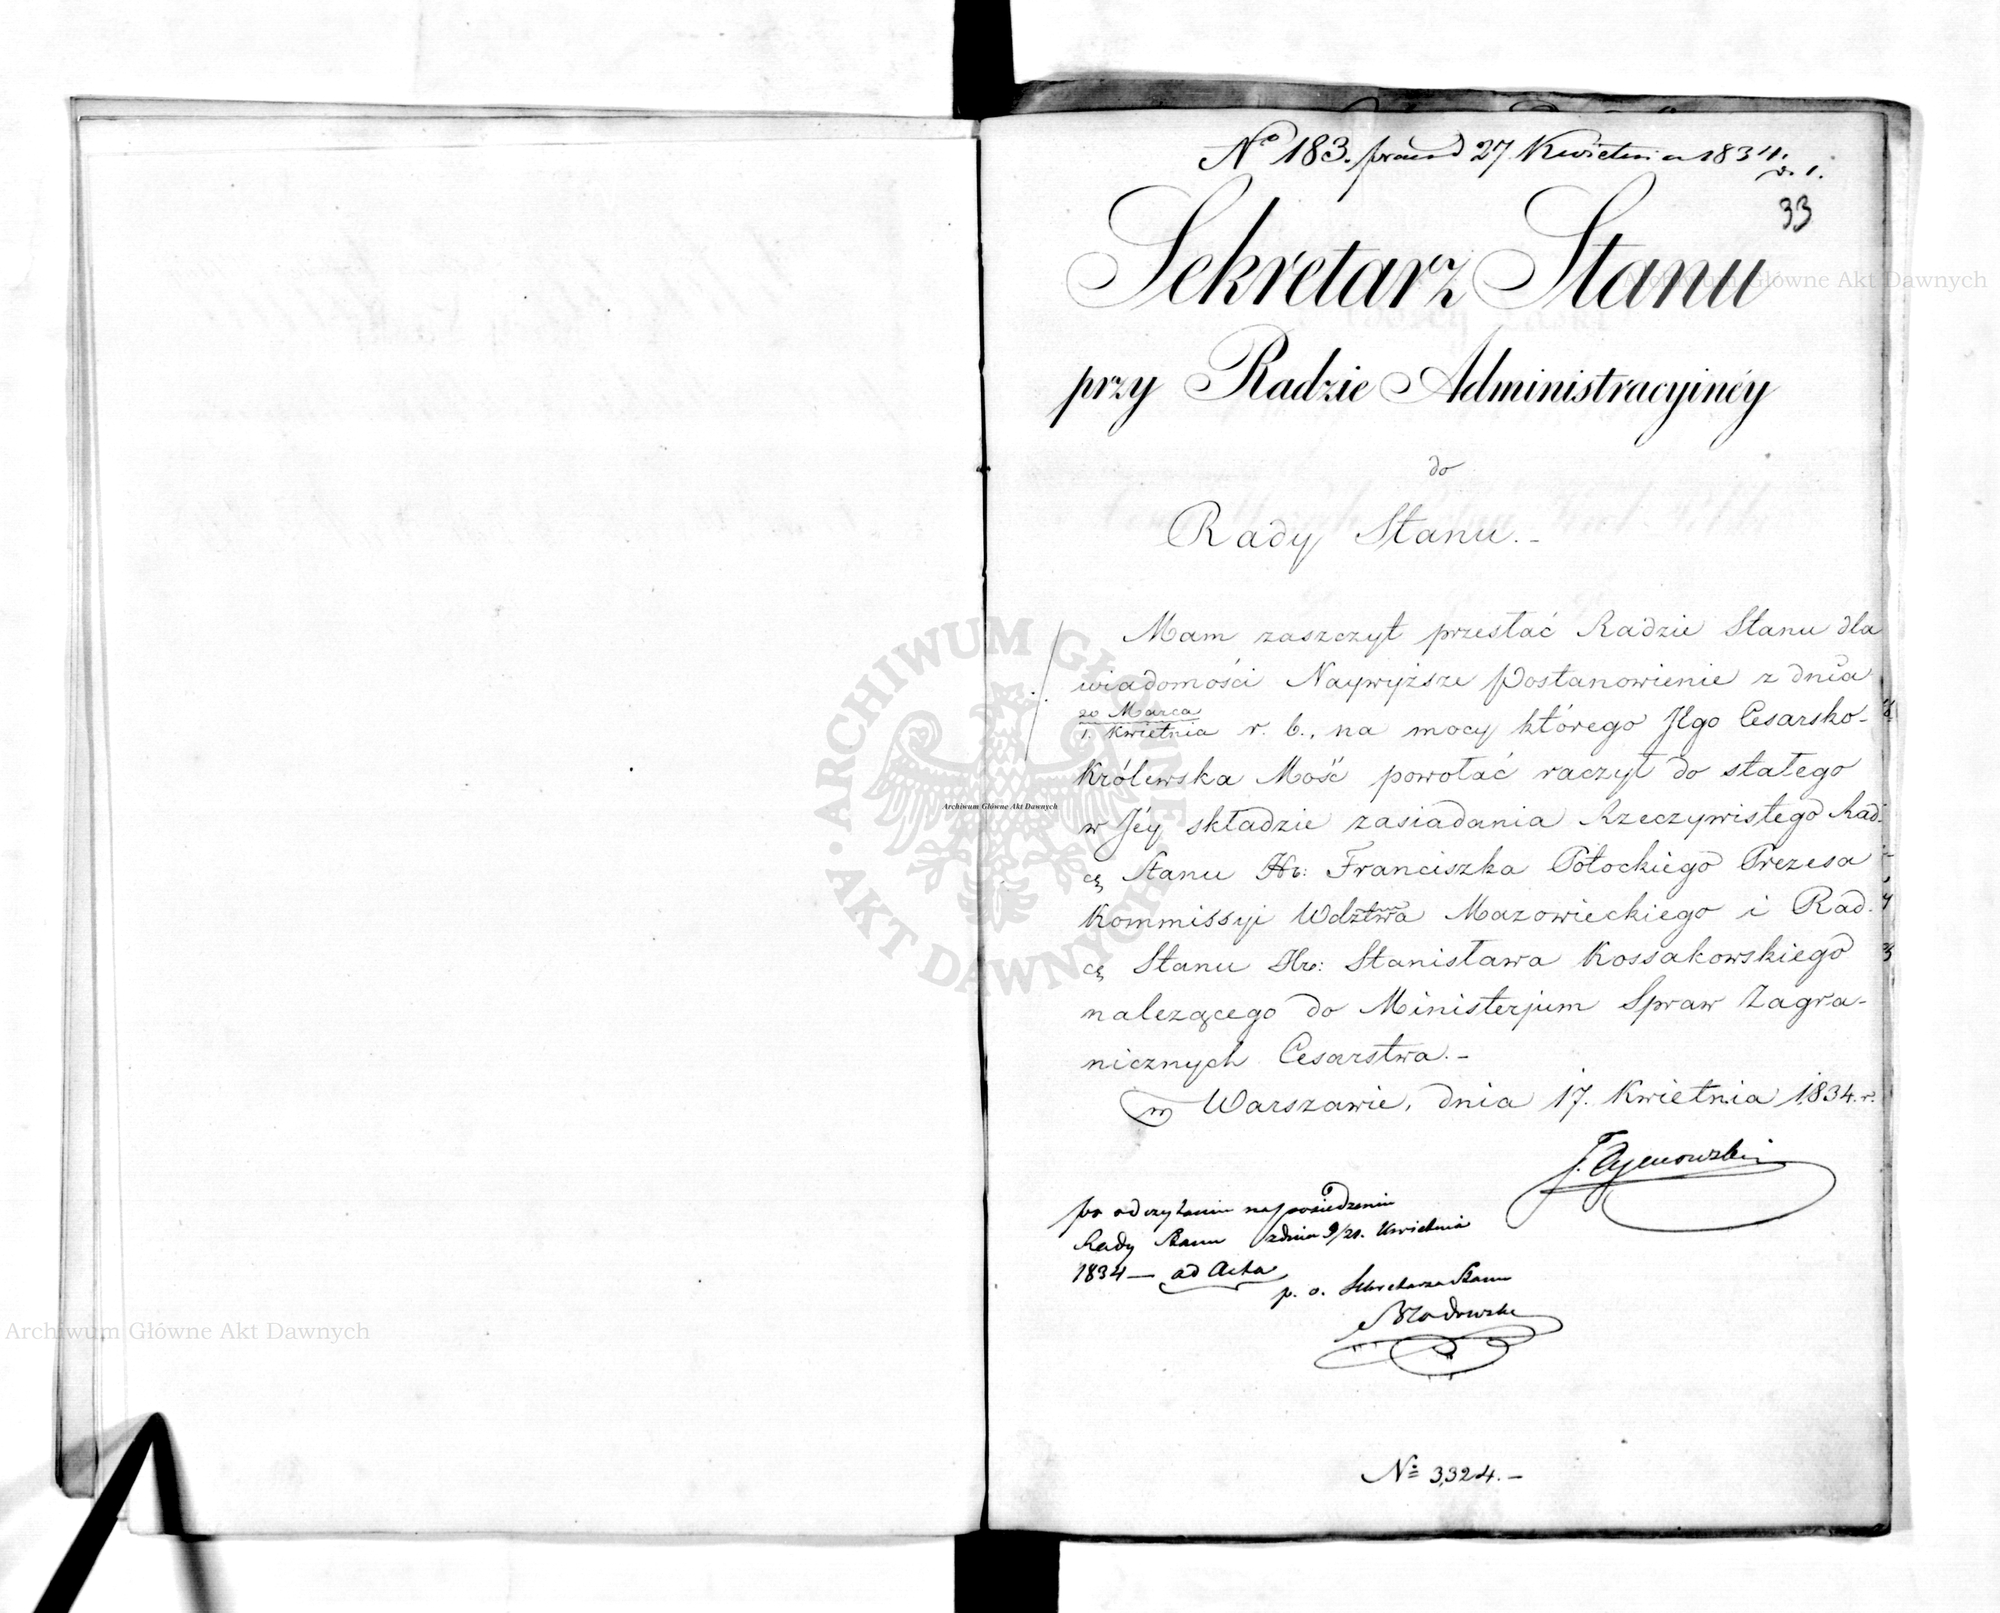 Nº 183. 27 Kwietnia 1834.
33
Sekretarz Stanu
przy Radzie Administracyinéy
do
Rady Stanu.-
Mam zaszczyt przesłać Radzie Stanu dla
wiadomości Naywyższe Postanowienie z dnia
20 Marca
1. Kwietnia r. b., na mocy którego Jego Cesarsko-
Królewska Mość powołać raczył do stałego
w Jéy składzie zasiadania Rzeczywistego Rad-
cę Stanu Hr: Franciszka Potockiego Prezesa
Kommissyi Wdztwa Mazowieckiego i Rad-
cę Stanu Hr: Stanisława Kossakowskiego
należącego do Ministerjum Spraw Zagra-
nicznych Cesarstwa.-
w Warszawie, dnia 17. Kwietnia 1834. r.
J. Tymowski
po odczytaniu na posiedzeniu
Rady Stanu z dnia 9/21. Kwietnia
1834 — ad Acta
p. o. Sekretarza Stanu
Nº 3,324.-
Archiwum Główne Akt Dawnych
Archiwum Główne Akt Dawnych
Archiwum Główne Akt Dawnych
ARCHIWUM GŁÓWNE AKT DAWNYCH